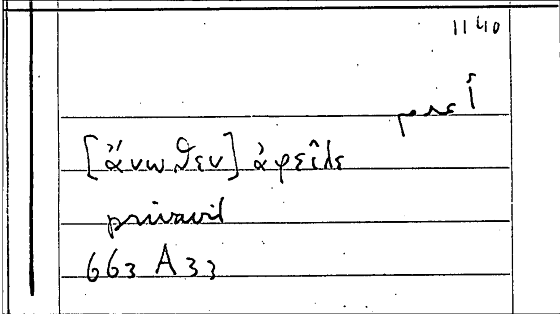 1140
[ἄνωθεν] ἀφεῖλε
privavit
663 A 33